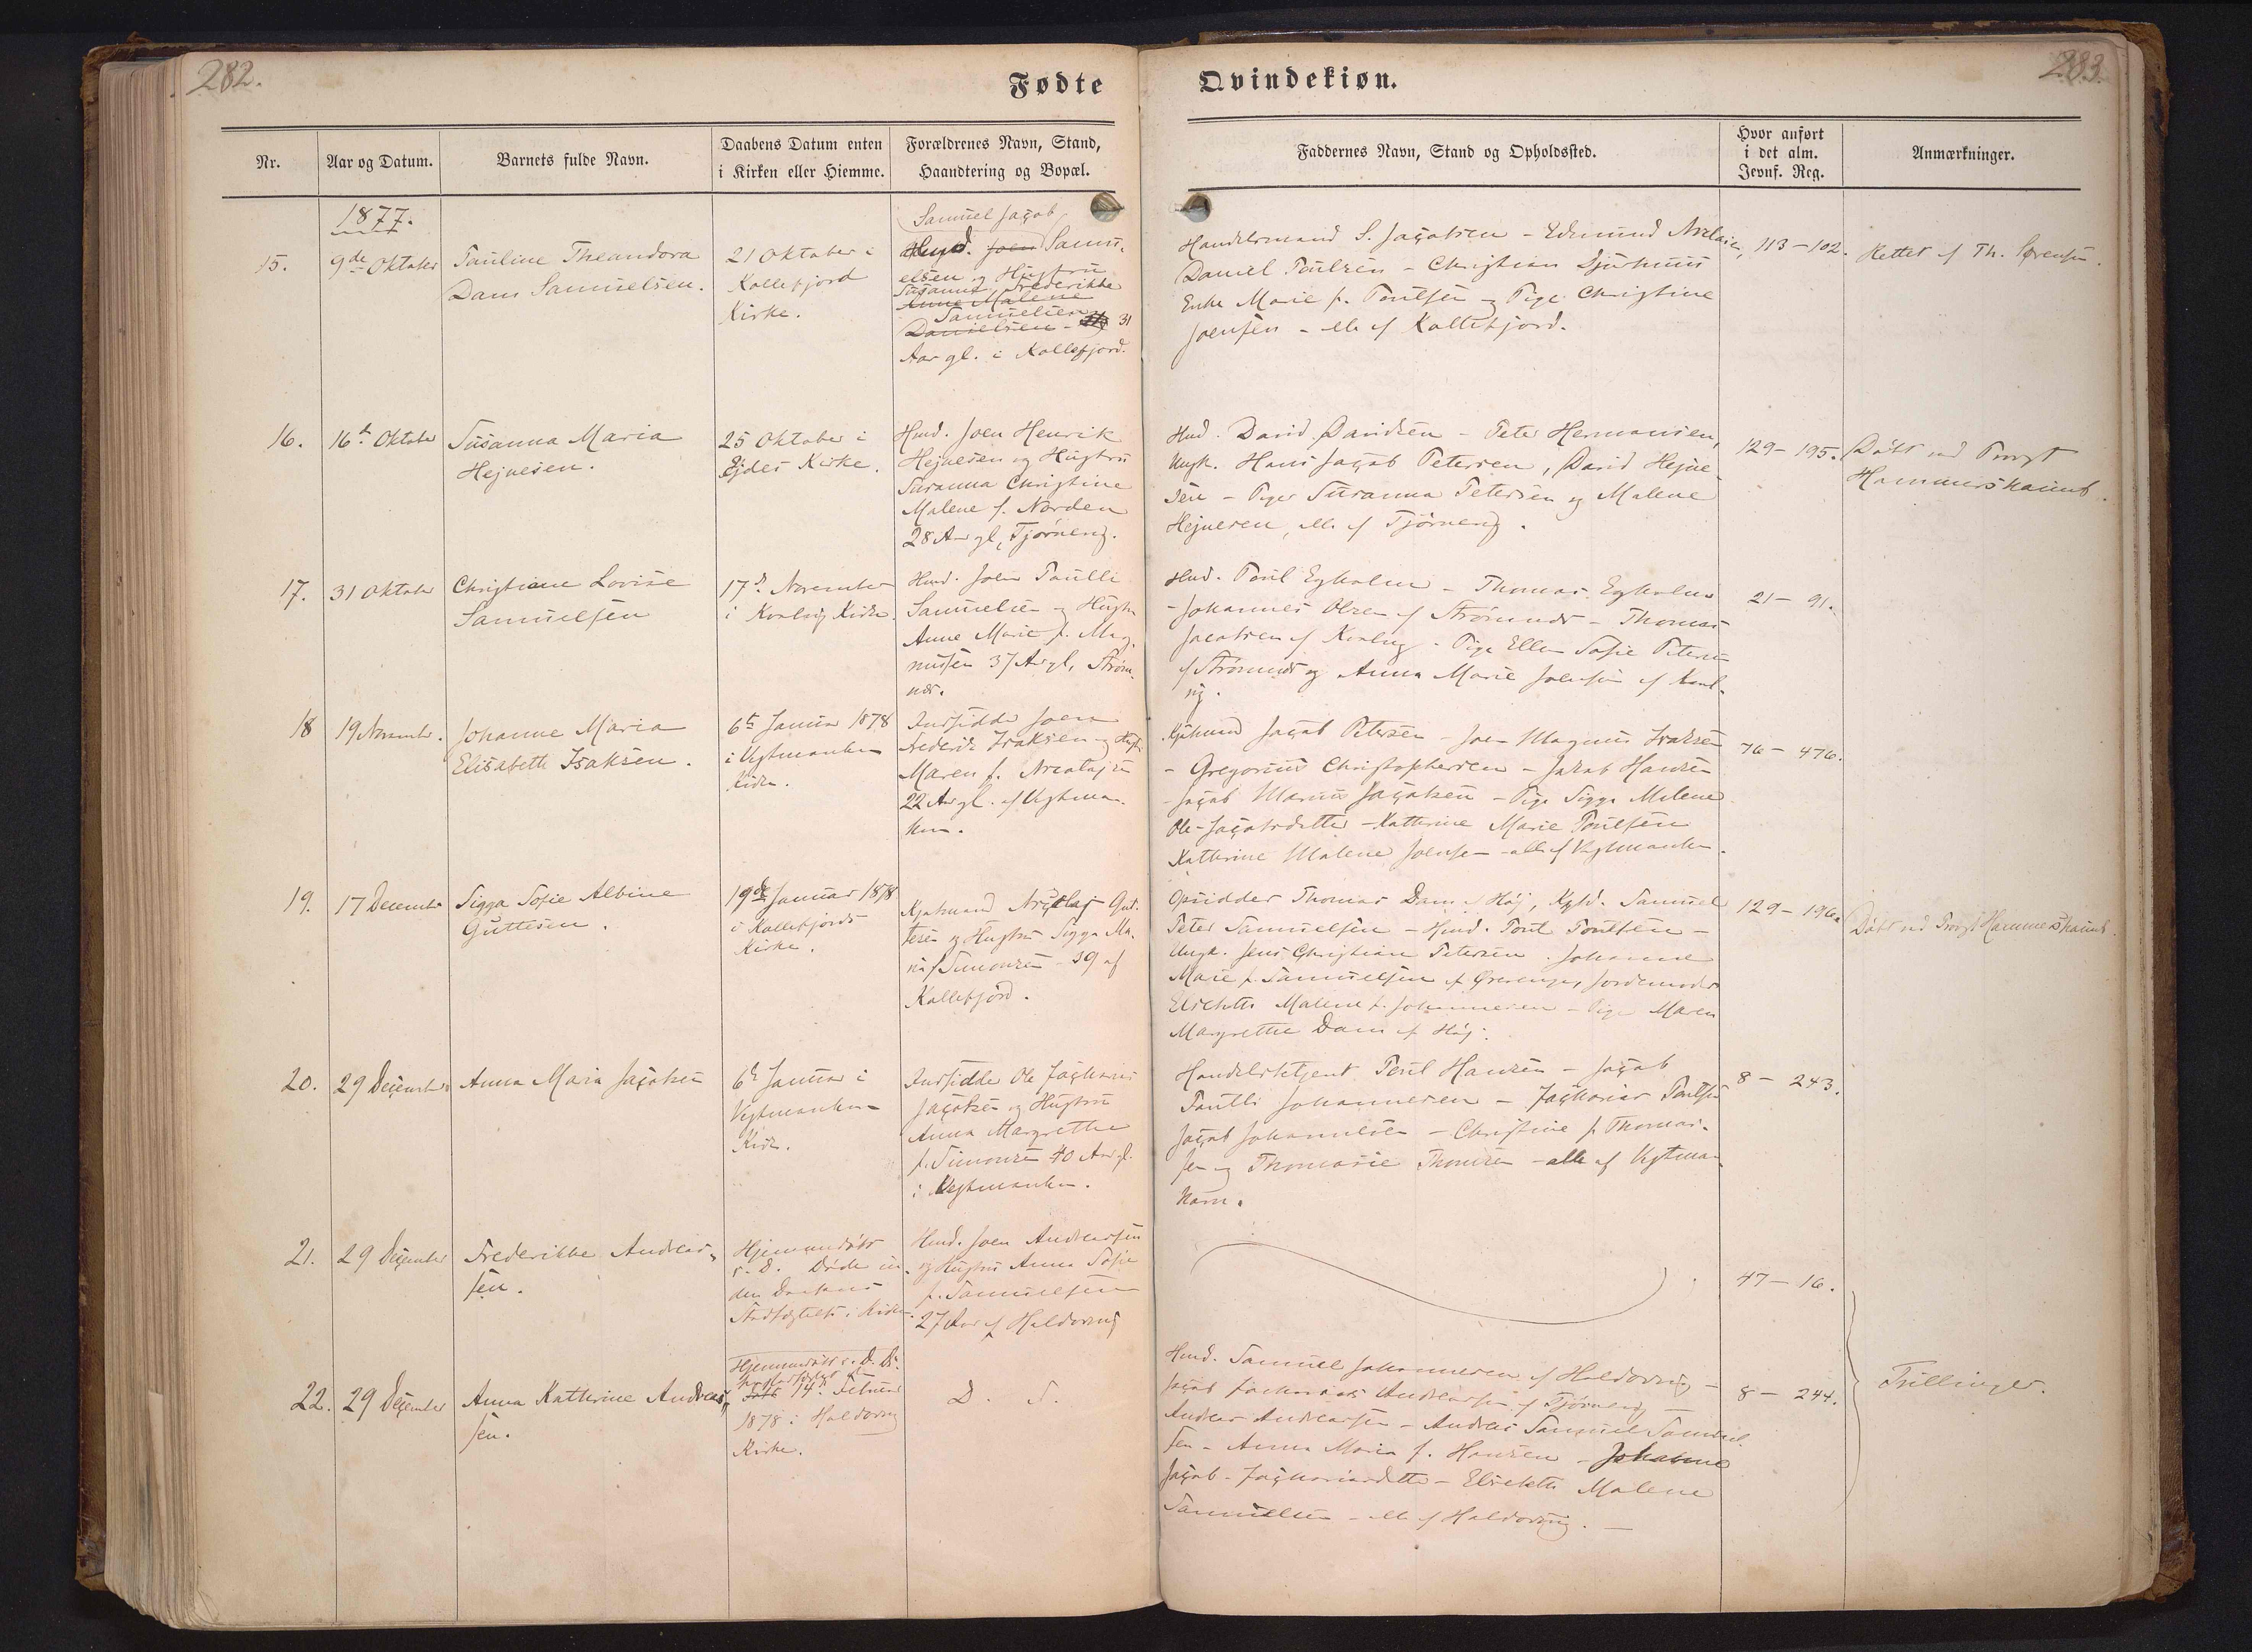 282.
Fødte
Qvindekiøn.
283.
Nr.
Aar og Datum.
Barnets fulde Navn.
Daabens Datum enten
i Kirken eller Hiemme.
Forældrenes Navn, Stand,
Haandtering og Bopæl.
Faddernes Navn, Stand og Opholdssted.
Hvor anført
i det alm.
Jevnf. Reg.
Anmærkninger.
1877.
15.
9de Oktober
Pauline Theandora
Dam Samuelsen.
21 Oktober i
Kollefjord
Kirke.
Samuel Jaçob
Hmd. Joen Samu-
elsen og Hustru
Susanne Frederikke
Anne Malene
Samuelsen
Danielsen - 31
Aar gl. i Kollefjord.
Handelsmand S. Jaçobsen - Edmund
Daniel Poulsen - Christian Djurhuus
Enke Marie f. Poulsen og Pige Christine
Joensen - alle af Kollefjord.
113 - 102.
Rettet af Th. Sørensen.
16.
16de Oktober
Susanna Maria
Hejnesen.
25 Oktober i
Ejdes Kirke.
Hmd. Joen Henrik
Hejnesen og Hustru
Susanna Christine
Malene f. Norden
28 Aar gl, Tjørneng.
Hmd. David Davidsen - Peter Hermansen,
Ungk. Hans Jaçob Petersen, David Hejne-
sen - Piger Susanna Petersen og Malene
Hejnesen, alle af Tjørneng.
129 - 195.
Døbt ved Provst
Hammershaimb.
17.
31 Oktober
Christiane Lovise
Samuelsen
17de November
i Kvalvig Kirke.
Hmd. Joen Poulli
Samuelsen og Hustru
Anne Marie f. Mag-
nussen 37 Aar gl, Strøm-
næs.
Hmd. Poul Egholm - Thomas Egholm
- Johannes Olsen af Strømnæs - Thomas
Jacobsen af Kvalvig - Pige Ellen Sofie Petersen
af Strømnæs og Anna Marie Joensen af Kval-
vig.
21 - 91.
18
19 November.
Johanne Maria
Elisabeth Isaksen.
6te Januar 1878
i Vestmanhavn
Kirke.
Indsidder Joen
Frederik Isaksen og Hustru
Maren f.
22 Aar gl. af Vestman-
havn.
Kjøbmand Jaçob Petersen - Joen Magnus Isaksen
- Gregorius Christophersen - Jakob Hansen
- Jaçob Marius Jaçobsen - Pige Sigga Malene
Ole-Jaçobsdatter - Kathrine Marie Poulsen
Kathrine Malene Joensen - alle af Vestmanhavn.
76 - 476.
19.
17 December
Sigga Sofie Albine
Guttesen.
19de Januar 1878
i Kollefjords
Kirke.
Kjøbmand Gut-
tesen og Hustru Sigga Ma-
ria f. Simonsen - 39 af
Kollefjord.
Opsidder Thomas Dam af Høj, Samuel
Peter Samuelsen - Hmd. Poul Poulsen -
Ungk. Jens Christian Petersen. Johanne
Marie f. Samuelsen af Øreringe, Jordemoder
Elsebeth Malene f. Johannesen - Pige Maren
Margrethe Dam af Høj.
129 - 196.
Døbt ved Provst Hammershaimb.
20.
29 Deçember
Anna Maria Jaçobsen
6te Januar i
Vestmanhavn
Kirke.
Indsidder Ole Jaçharias
Jaçobsen og Hustru
Anna Margrethe
f. Simonsen 40 Aar gl.
i Vestmanhavn.
Handelsbetjent Poul Hansen - Jaçob
Poulli Johannesen - Jaçharias Poulsen
Jaçob Johannesen - Christine f. Thomas-
sen og Thomasie Thomsen - alle af Vestman-
havn.
8 - 243.
21.
29 Deçember
Frederikke Andreas-
sen.
Hjemmedøbt
s. D. Døde in-
den Daabens
Stadfæstelse i Kirken.
Hmd. Joen Andreassen
og Hustru Anna Sofie
f. Samuelsen
27 Aar af Haldorsvig
47 - 16.
22.
29 Deçember
Anna Kathrine Andreas-
sen.
Hjemmedøbt s. D.
14de Februar
1878 i Haldorsvig
Kirke.
D. S.
Hmd. Samuel Johannesen af Haldorsvig -
Jaçob Andreassen af Tjørneng -
Andreas Andreassen - Andreas Samuel Samuel-
sen - Anna Maria f. Hansen - Johanne
Jaçob-Jaçhariasdatter - Elsebeth Malene
Samuelsen - alle af Haldorsvig. -
8 - 244.
Tvillinger.